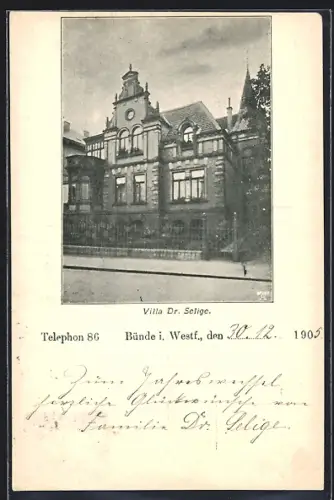 Villa Dr. Selige.
Telephon 86 Bünde i. Westf., den 30.12. 1905
Zum Jahreswechsel
herzliche Glückwünsche von
Familie Dr. Selige.